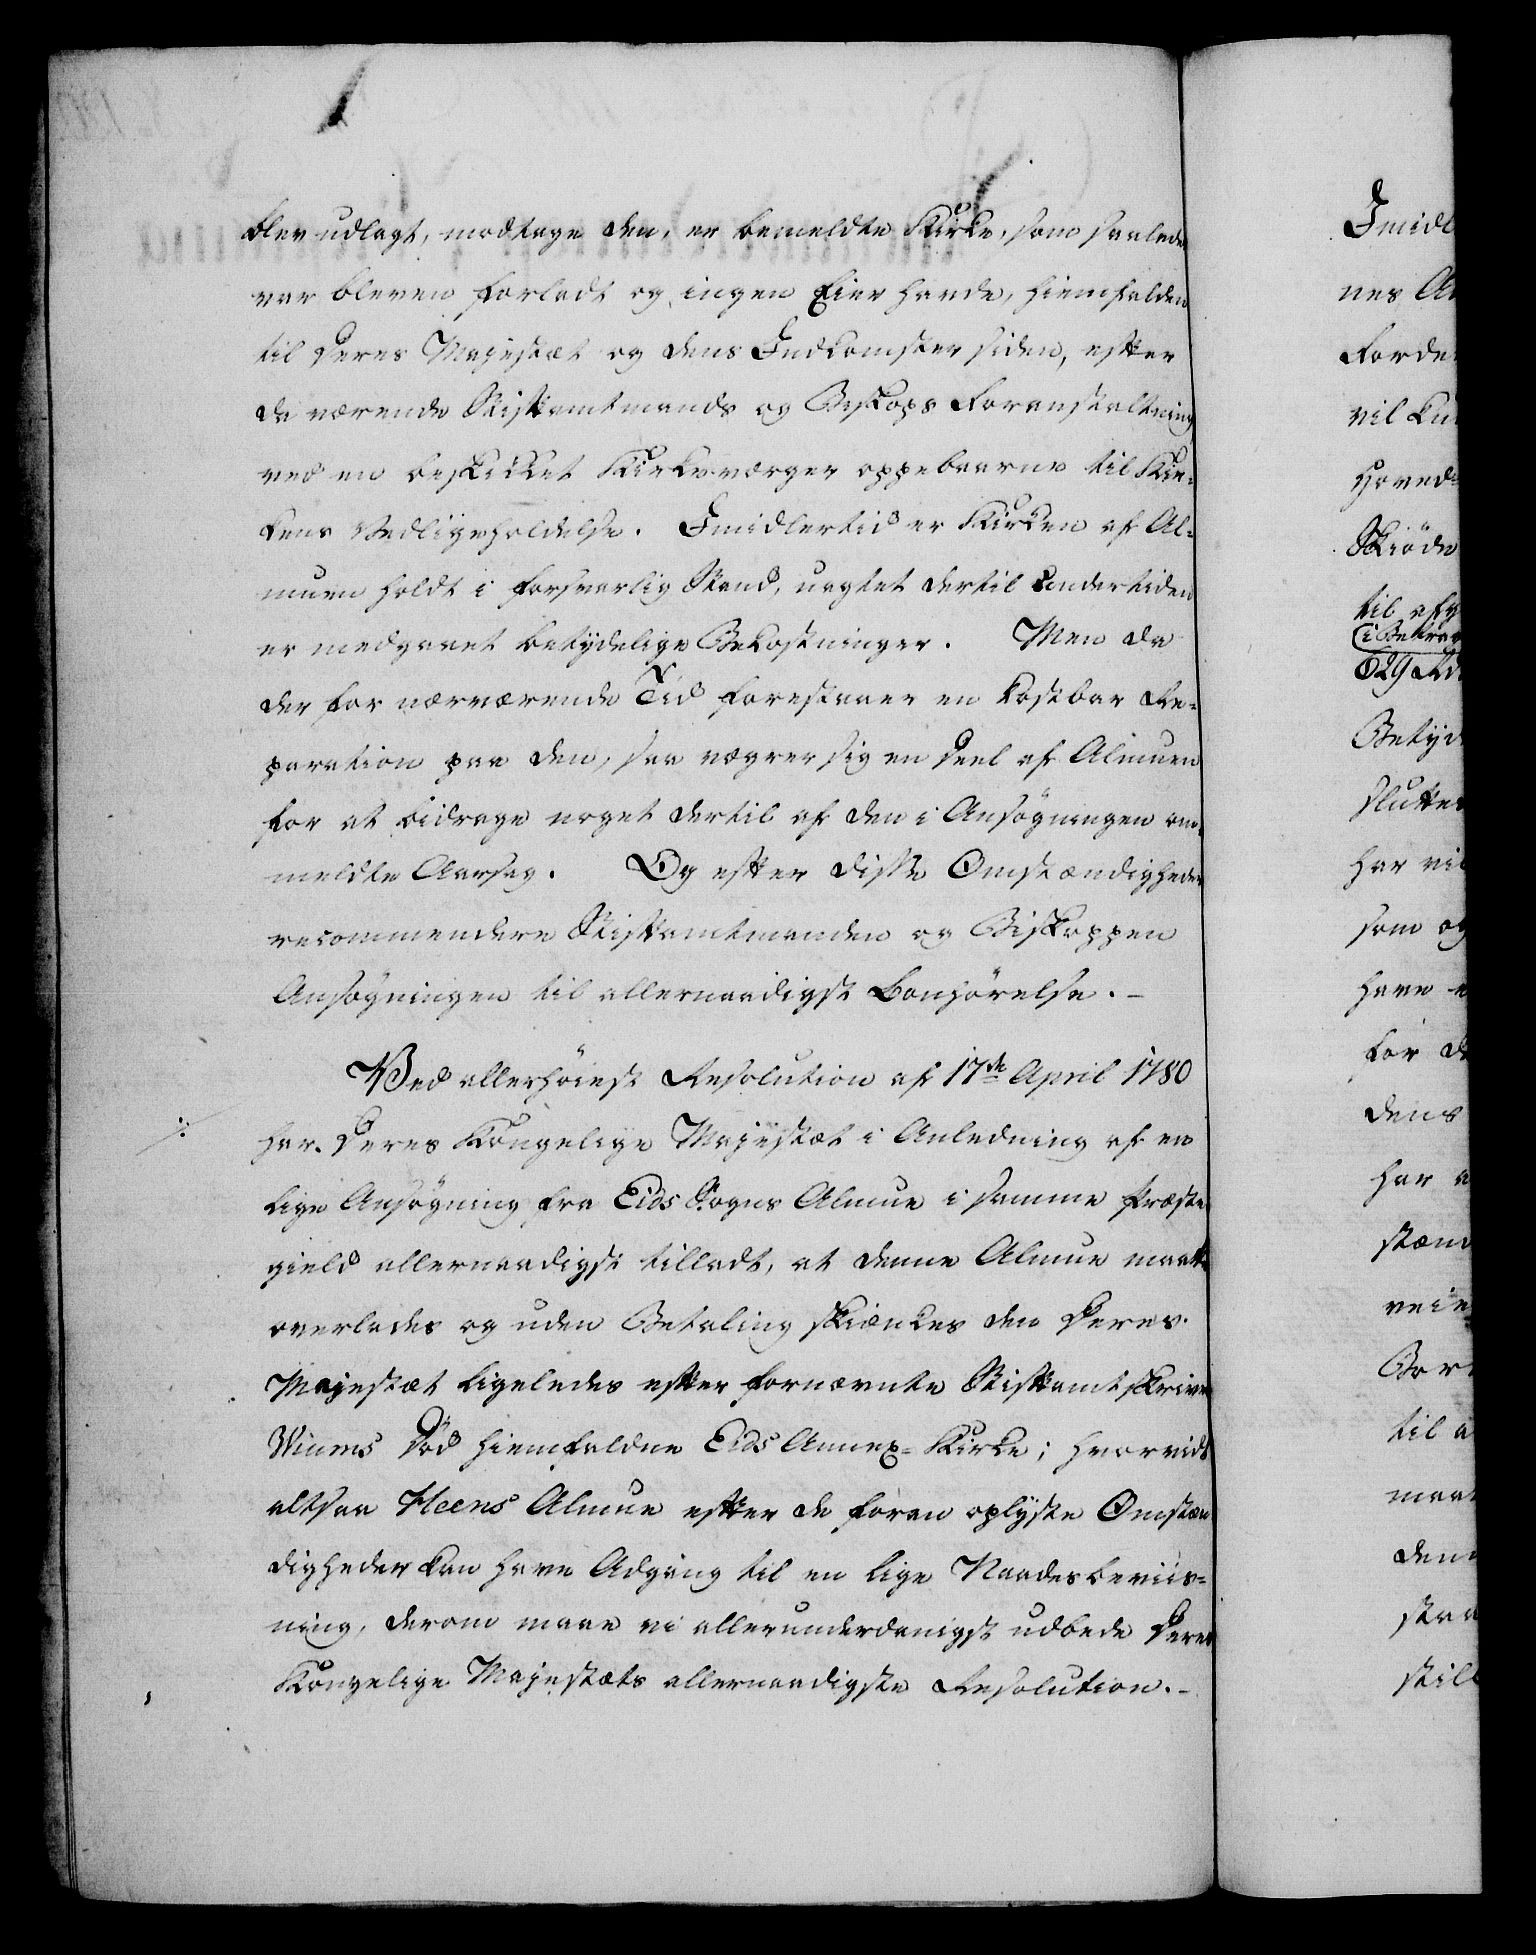 blev udlagt, modtage den, er bemeldte Kirke, som saaledes
var bleven forladt og ingen Eier havde, hiemfalden
til Deres Majestæt og dens Indkomster siden, efter
da værende Stiftamtmands og Biskops Foranstaltning
ved en beskikket Kirkeværger oppebaarne til Kir-
kens Vedligeholdelse. Imidlertid er Kirken af Al-
muen holdt i forsvarlig Stand, uagtet dertil undertiden
er medgaaet betydelige Bekostninger. Men da
der for nærværende Tid forestaaer en kostbar Re-
paration paa den, saa vægrer sig en Deel af Almuen
for at bidrage noget dertil af den i Ansøgningen om-
meldte Aarsag. Og efter disse Omstændigheder
recommendere Stiftamtmanden og Biskoppen
Ansøgningen til allernaadigst Bønhørelse. -
Ved allerhöiest Resolution af 17de April 1780
har Deres Kongelige Majestæt i Anledning af en
lige Ansøgning fra Eids Sogns Almue i samme Præste-
gield allernaadigst tilladt, at denne Almue maatte
overlades og uden Betaling skiænkes den Deres
Majestæt ligeledes efter fornævnte Stiftamtskriver
Winens Död hiemfaldne Eids Annex-Kirke; hvorvidt
altsaa Heens Almue efter de foran oplyste Omstæn
digheder kan have Adgang til en lige Naadesbeviis-
ning, derom maae vi allerunderdanigst udbede Deres
Kongelige Majestæts allernaadigste Resolution. -
Imidl
nes
forde
vil
hoved-
Skiöde
til
629
Betyd
slutte
har vil
som og
have
for
dens
har
stæn
veie
til
maa
den
staa
still